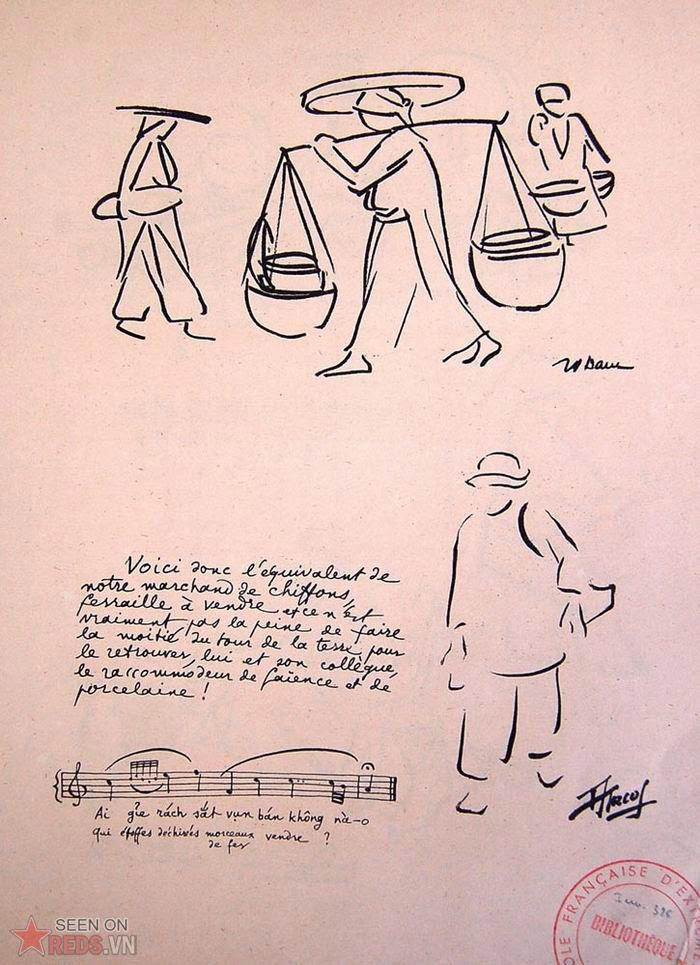 Voici donc l'équivalent de
notre marchand de chiffons,
ferraille à vendre et ce n'est
vraiment pas la peine de faire
la moitié du tour de la terre pour
le retrouver, lui et son collègue,
le raccommodeur de faïence et de
porcelaine !
Ai giẻ rách sắt vụn bán không nà-o
qui étoffes déchirés morceaux vendre ?
de fer
FRANÇAISE D'EXT
Inv. 326
BIBLIOTHÈQUE
SEEN ON
REDS.VN